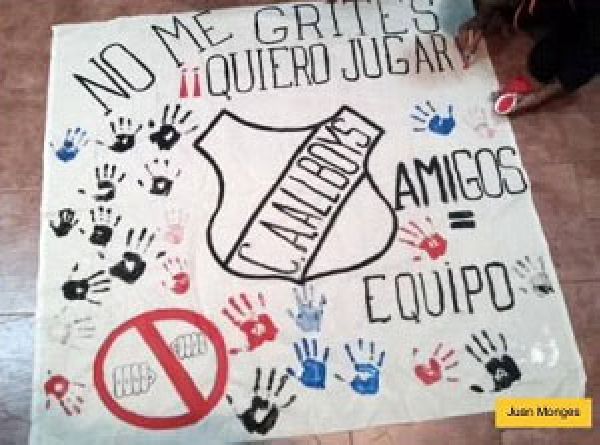 NO ME GRITES
¡¡QUIERO JUGAR!
C.A ALL BOYS
AMIGOS
=
EQUIPO
Juan Monges